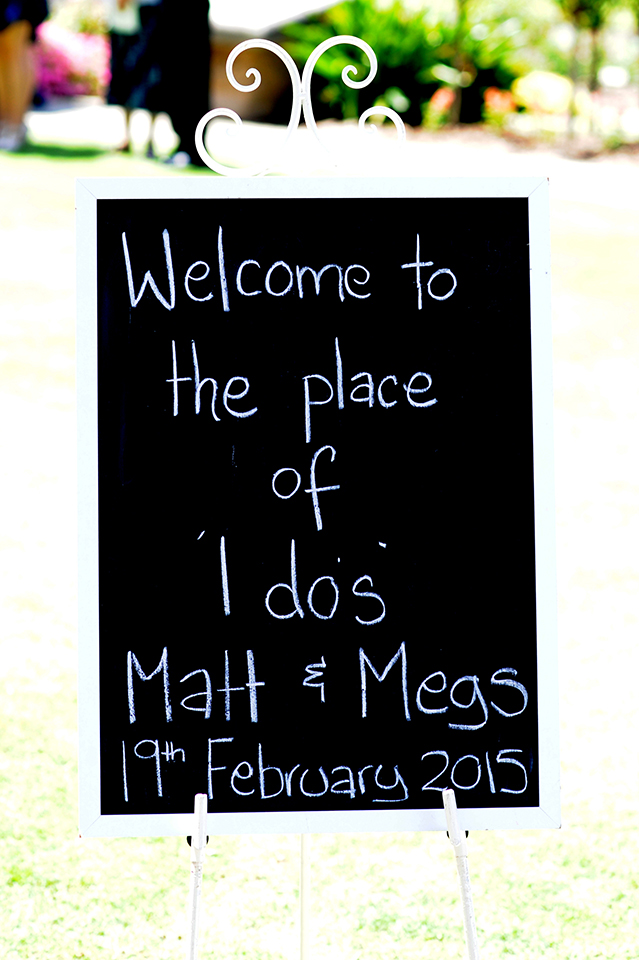 Welcome to
the place
of
'I do's'
Matt & Megs
19th February 2015